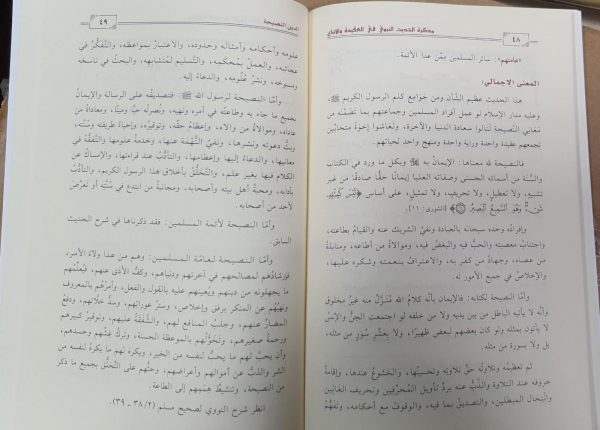 ٤٨
مذكرة الحديث النبوي في العقيدة والاتباع
«عامتهم»: سائر المسلمين ممَّن عدا الأئمة.
المعنى الإجمالي:
هذا الحديث عظيم الشَّأن ومن جوامع كلم الرسول الكريم ﷺ،
وعليه مدار الإسلام لو عمل أفراد المسلمين وجماعتهم بما تضمَّنه من
معاني النَّصيحة لنالوا سعادة الدنيا والآخرة، ولعاشوا إخوة متحابِّين
تجمعهم عقيدة واحدة وراية واحدة ومنهج واحد لحياتهم.
فالنَّصيحة لله معناها: الإيمان به ﷺ وبكل ما ورد في الكتاب
والسُّنة من أسمائه الحسنى وصفاته العليا إيمانًا حقًّا صادقًا من غير
تشبيهٍ، ولا تعطيلٍ، ولا تحريف، ولا تمثيل، على أساس ﴿لَيْسَ كَمِثْلِهِ
شَيْءٌ وَهُوَ السَّمِيعُ الْبَصِيرُ﴾ [الشورى: ١١].
وإفرادُه وحده سبحانه بالعبادة ونفيُ الشريك عنه والقيامُ بطاعته،
واجتنابُ معصيته والحبُّ فيه والبغضُ فيه، وموالاةُ من أطاعه، ومنابذةُ
من عصاه، وجهادُ من كفر به، والاعترافُ بنعمته وشكره عليها،
والإخلاصُ في جميع الأمور له.
وأمَّا النصيحة لكتابه: فالإيمان بأنَّه كلامُ الله مُنزَّلٌ منه غيرُ مخلوق
وأنَّه لا يأتيه الباطل من بين يديه ولا من خلفه لو اجتمعت الجِنُّ والإنسُ
لا يأتون بمثله ولو كان بعضهم لبعض ظهيرًا، ولا بِعَشْرِ سُوَرٍ من مثله،
بل ولا بسورة من مثله.
ثم تعظيمُه وتلاوتُه حقَّ تلاوته وتحسينُها، والخشوعُ عندها، وإقامةُ
حروفه عند التلاوة والذَّبُّ عنه بردِّ تأويل المُحرِّفين وتحريف الغالين
وانتحال المبطلين، والتصديقُ بما فيه، والوقوفُ مع أحكامه، وتفهُّمُ
الدين النصيحة
٤٩
علومه وأحكامه وأمثاله وحدوده، والاعتبارُ بمواعظه، والتَّفكُّرُ في
عجائبه، والعملُ بمُحكَمه، والتَّسليم لمُتشابهه، والبحثُ في ناسخه
ومنسوخه، ونشرُ علومه، والدعاءُ إليه.
وأمَّا النصيحة لرسول الله ﷺ: فتصديقُه على الرسالة والإيمانُ
بجميع ما جاء به وطاعتُه في أمره ونهيه، ونُصرتُه حيًّا وميتًا، ومعاداةُ من
عاداه، وموالاةُ من والاه، وإعظامُ حقِّه، وتوقيرُه، وإحياءُ طريقته وسُنَّته،
وبثُّ دعوته ونشرها، ونفيُ التُّهمَة عنها، وخدمةُ علومها والتَّفقُّهُ في
معانيها، والدعاءُ إليها وإعظامها، والتَّأدُّبُ عند قراءتها، والإمساكُ عن
الكلام فيها بغير علم، والتَّخلُّق بأخلاق هذا الرسول الكريم، والتأدُّبُ
بآدابه، ومحبةُ أهل بيته وأصحابه، ومجانبةُ من ابتدع في سُنَّته أو تعرَّض
لأحد من أصحابه.
وأمَّا النصيحة لأئمة المسلمين: فقد ذكرناها في شرح الحديث
السابق.
وأمَّا النصيحة لعامَّة المسلمين: وهم من عدا ولاة الأمر،
فإرشادُهم لمصالحهم في آخرتهم ودنياهم، وكفُّ الأذى عنهم، فيُعلِّمُهم
ما يجهلونه من دينهم ويُعينهم عليه بالقول والفعل، وأمرُهم بالمعروف
ونهيُهم عن المنكر برفق وإخلاص، وسترُ عوراتهم، وسدُّ خلَّاتهم، ودفعُ
المضارِّ عنهم، وجلبُ المنافع لهم، والشَّفقةُ عليهم، وتوقيرُ كبيرهم
ورحمةُ صغيرهم، وتخوُّلُهم بالموعظة الحسنة، وتركُ غشِّهم وحسدهم،
وأن يحبَّ لهم ما يحبُّ لنفسه من الخير، ويكره لهم ما يكره لنفسه من
الشر والذبُّ عن أموالهم وأعراضهم، وحثُّهم على التَّخلُّق بجميع ما ذكر
من النصيحة، وتنشيطُ هِمَمِهم إلى الطاعة.
انظر شرح النووي لصحيح مسلم (٢/ ٣٨ ـ ٣٩).